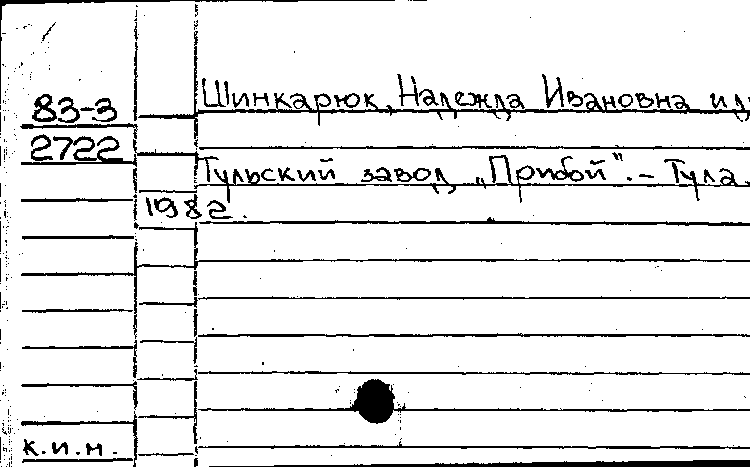 83-3
2722
Шинкарюк, Надежда Ивановна
Тульский завод „Прибой".- Тула.
1982.
к.и.м.